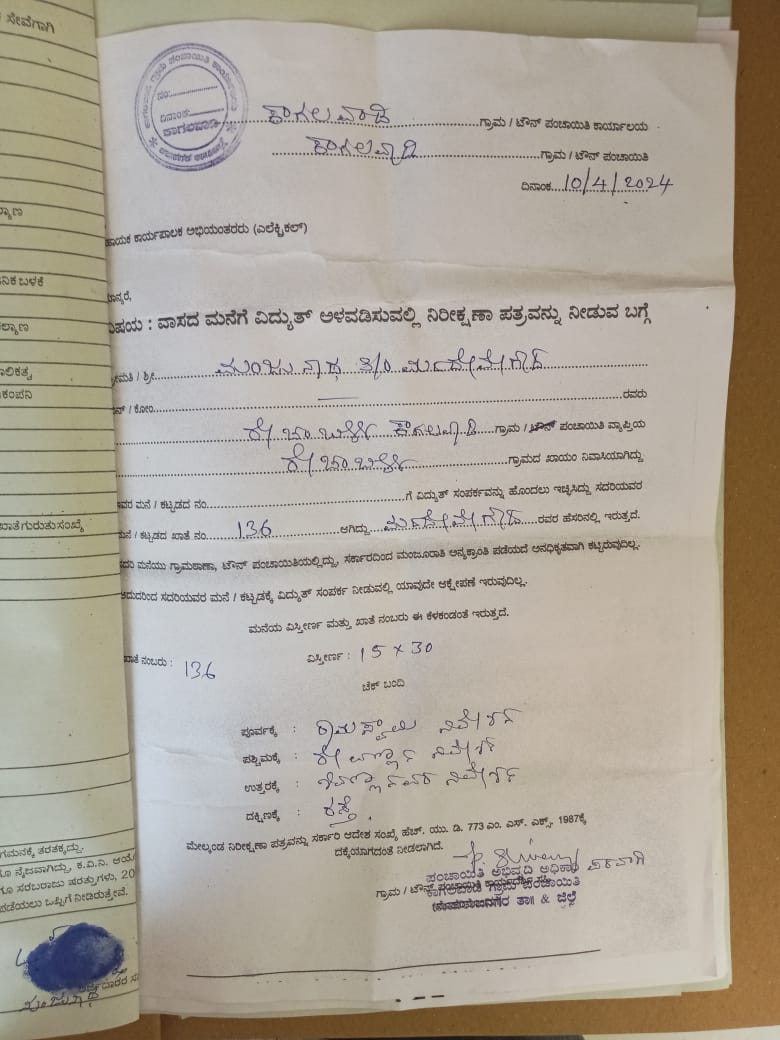 ಸೇವೆಗಾಗಿ
ನಂ:
ದಿನಾಂಕ
ಕಾಗಲವಾಡಿ
ಕಾಗಲವಾಡಿ ಗ್ರಾಮ / ಟೌನ್ ಪಂಚಾಯಿತಿ ಕಾರ್ಯಾಲಯ
ಕಾಗಲವಾಡಿ ಗ್ರಾಮ / ಟೌನ್ ಪಂಚಾಯಿತಿ
ದಿನಾಂಕ 10/4/2024
ಹಾಯಕ ಕಾರ್ಯಪಾಲಕ ಅಭಿಯಂತರರು (ಎಲೆಕ್ಟ್ರಿಕಲ್)
ಮಾನ್ಯರೆ,
ವಿಷಯ : ವಾಸದ ಮನೆಗೆ ವಿದ್ಯುತ್ ಅಳವಡಿಸುವಲ್ಲಿ ನಿರೀಕ್ಷಣಾ ಪತ್ರವನ್ನು ನೀಡುವ ಬಗ್ಗೆ
ಶ್ರೀಮತಿ / ಶ್ರೀ ಮಂಜುನಾಥ S/O ಮಾದೇವೇಗೌಡ
ಬಿನ್ / ಕೋಂ ರವರು
ಕಾಗಲವಾಡಿ ಗ್ರಾಮ / ಟೌನ್ ಪಂಚಾಯಿತಿ ವ್ಯಾಪ್ತಿಯ
ಗ್ರಾಮದ ಖಾಯಂ ನಿವಾಸಿಯಾಗಿದ್ದು
ಇವರ ಮನೆ / ಕಟ್ಟಡದ ನಂ ಗೆ ವಿದ್ಯುತ್ ಸಂಪರ್ಕವನ್ನು ಹೊಂದಲು ಇಚ್ಛಿಸಿದ್ದು ಸದರಿಯವರ
ಮನೆ / ಕಟ್ಟಡದ ಖಾತೆ ನಂ 136 ಆಗಿದ್ದು ಮಾದೇವೇಗೌಡ ರವರ ಹೆಸರಿನಲ್ಲಿ ಇರುತ್ತದೆ.
ಸದರಿ ಮನೆಯು ಗ್ರಾಮಠಾಣಾ, ಟೌನ್ ಪಂಚಾಯಿತಿಯಲ್ಲಿದ್ದು, ಸರ್ಕಾರದಿಂದ ಮಂಜೂರಾತಿ ಅನ್ಯಕ್ರಾಂತಿ ಪಡೆಯದೆ ಅನಧಿಕೃತವಾಗಿ ಕಟ್ಟಿರುವುದಿಲ್ಲ.
ಆದುದರಿಂದ ಸದರಿಯವರ ಮನೆ / ಕಟ್ಟಡಕ್ಕೆ ವಿದ್ಯುತ್ ಸಂಪರ್ಕ ನೀಡುವಲ್ಲಿ ಯಾವುದೇ ಆಕ್ಷೇಪಣೆ ಇರುವುದಿಲ್ಲ.
ಮನೆಯ ವಿಸ್ತೀರ್ಣ ಮತ್ತು ಖಾತೆ ನಂಬರು ಈ ಕೆಳಕಂಡಂತೆ ಇರುತ್ತದೆ.
ಖಾತೆ ನಂಬರು : 136 ವಿಸ್ತೀರ್ಣ : 15 x 30
ಚೆಕ್ ಬಂದಿ
ಪೂರ್ವಕ್ಕೆ : ರಾಮಸ್ವಾಮಿ ನಿವೇಶನ
ಪಶ್ಚಿಮಕ್ಕೆ : ನಿವೇಶನ
ಉತ್ತರಕ್ಕೆ : ನಿವೇಶನ
ದಕ್ಷಿಣಕ್ಕೆ : ರಸ್ತೆ.
ಮೇಲ್ಕಂಡ ನಿರೀಕ್ಷಣಾ ಪತ್ರವನ್ನು ಸರ್ಕಾರಿ ಆದೇಶ ಸಂಖ್ಯೆ ಹೆಚ್. ಯು. ಡಿ. 773 ಎಂ. ಎಸ್. ಎಕ್ಸ್. 1987ಕ್ಕೆ
ದಕ್ಕೆಯಾಗದಂತೆ ನೀಡಲಾಗಿದೆ.
ಪಂಚಾಯಿತಿ ಅಭಿವೃದ್ಧಿ ಅಧಿಕಾರಿ
ಗ್ರಾಮ / ಟೌನ್ ಪಂಚಾಯಿತಿ ಕಾರ್ಯದರ್ಶಿ
ಕಾಗಲವಾಡಿ ಗ್ರಾಮ ಪಂಚಾಯಿತಿ
ತಾ॥ & ಜಿಲ್ಲೆ
ನಿಕ ಬಳಕೆ
ಕಂಪನಿ
ಖಾತೆಗುರುತು ಸಂಖ್ಯೆ
ಗಮನಕ್ಕೆ ತರತಕ್ಕದ್ದು.
ಪಡೆಯಲು ಒಪ್ಪಿಗೆ ನೀಡಿರುತ್ತೇವೆ.
ಮಂಜುನಾಥ